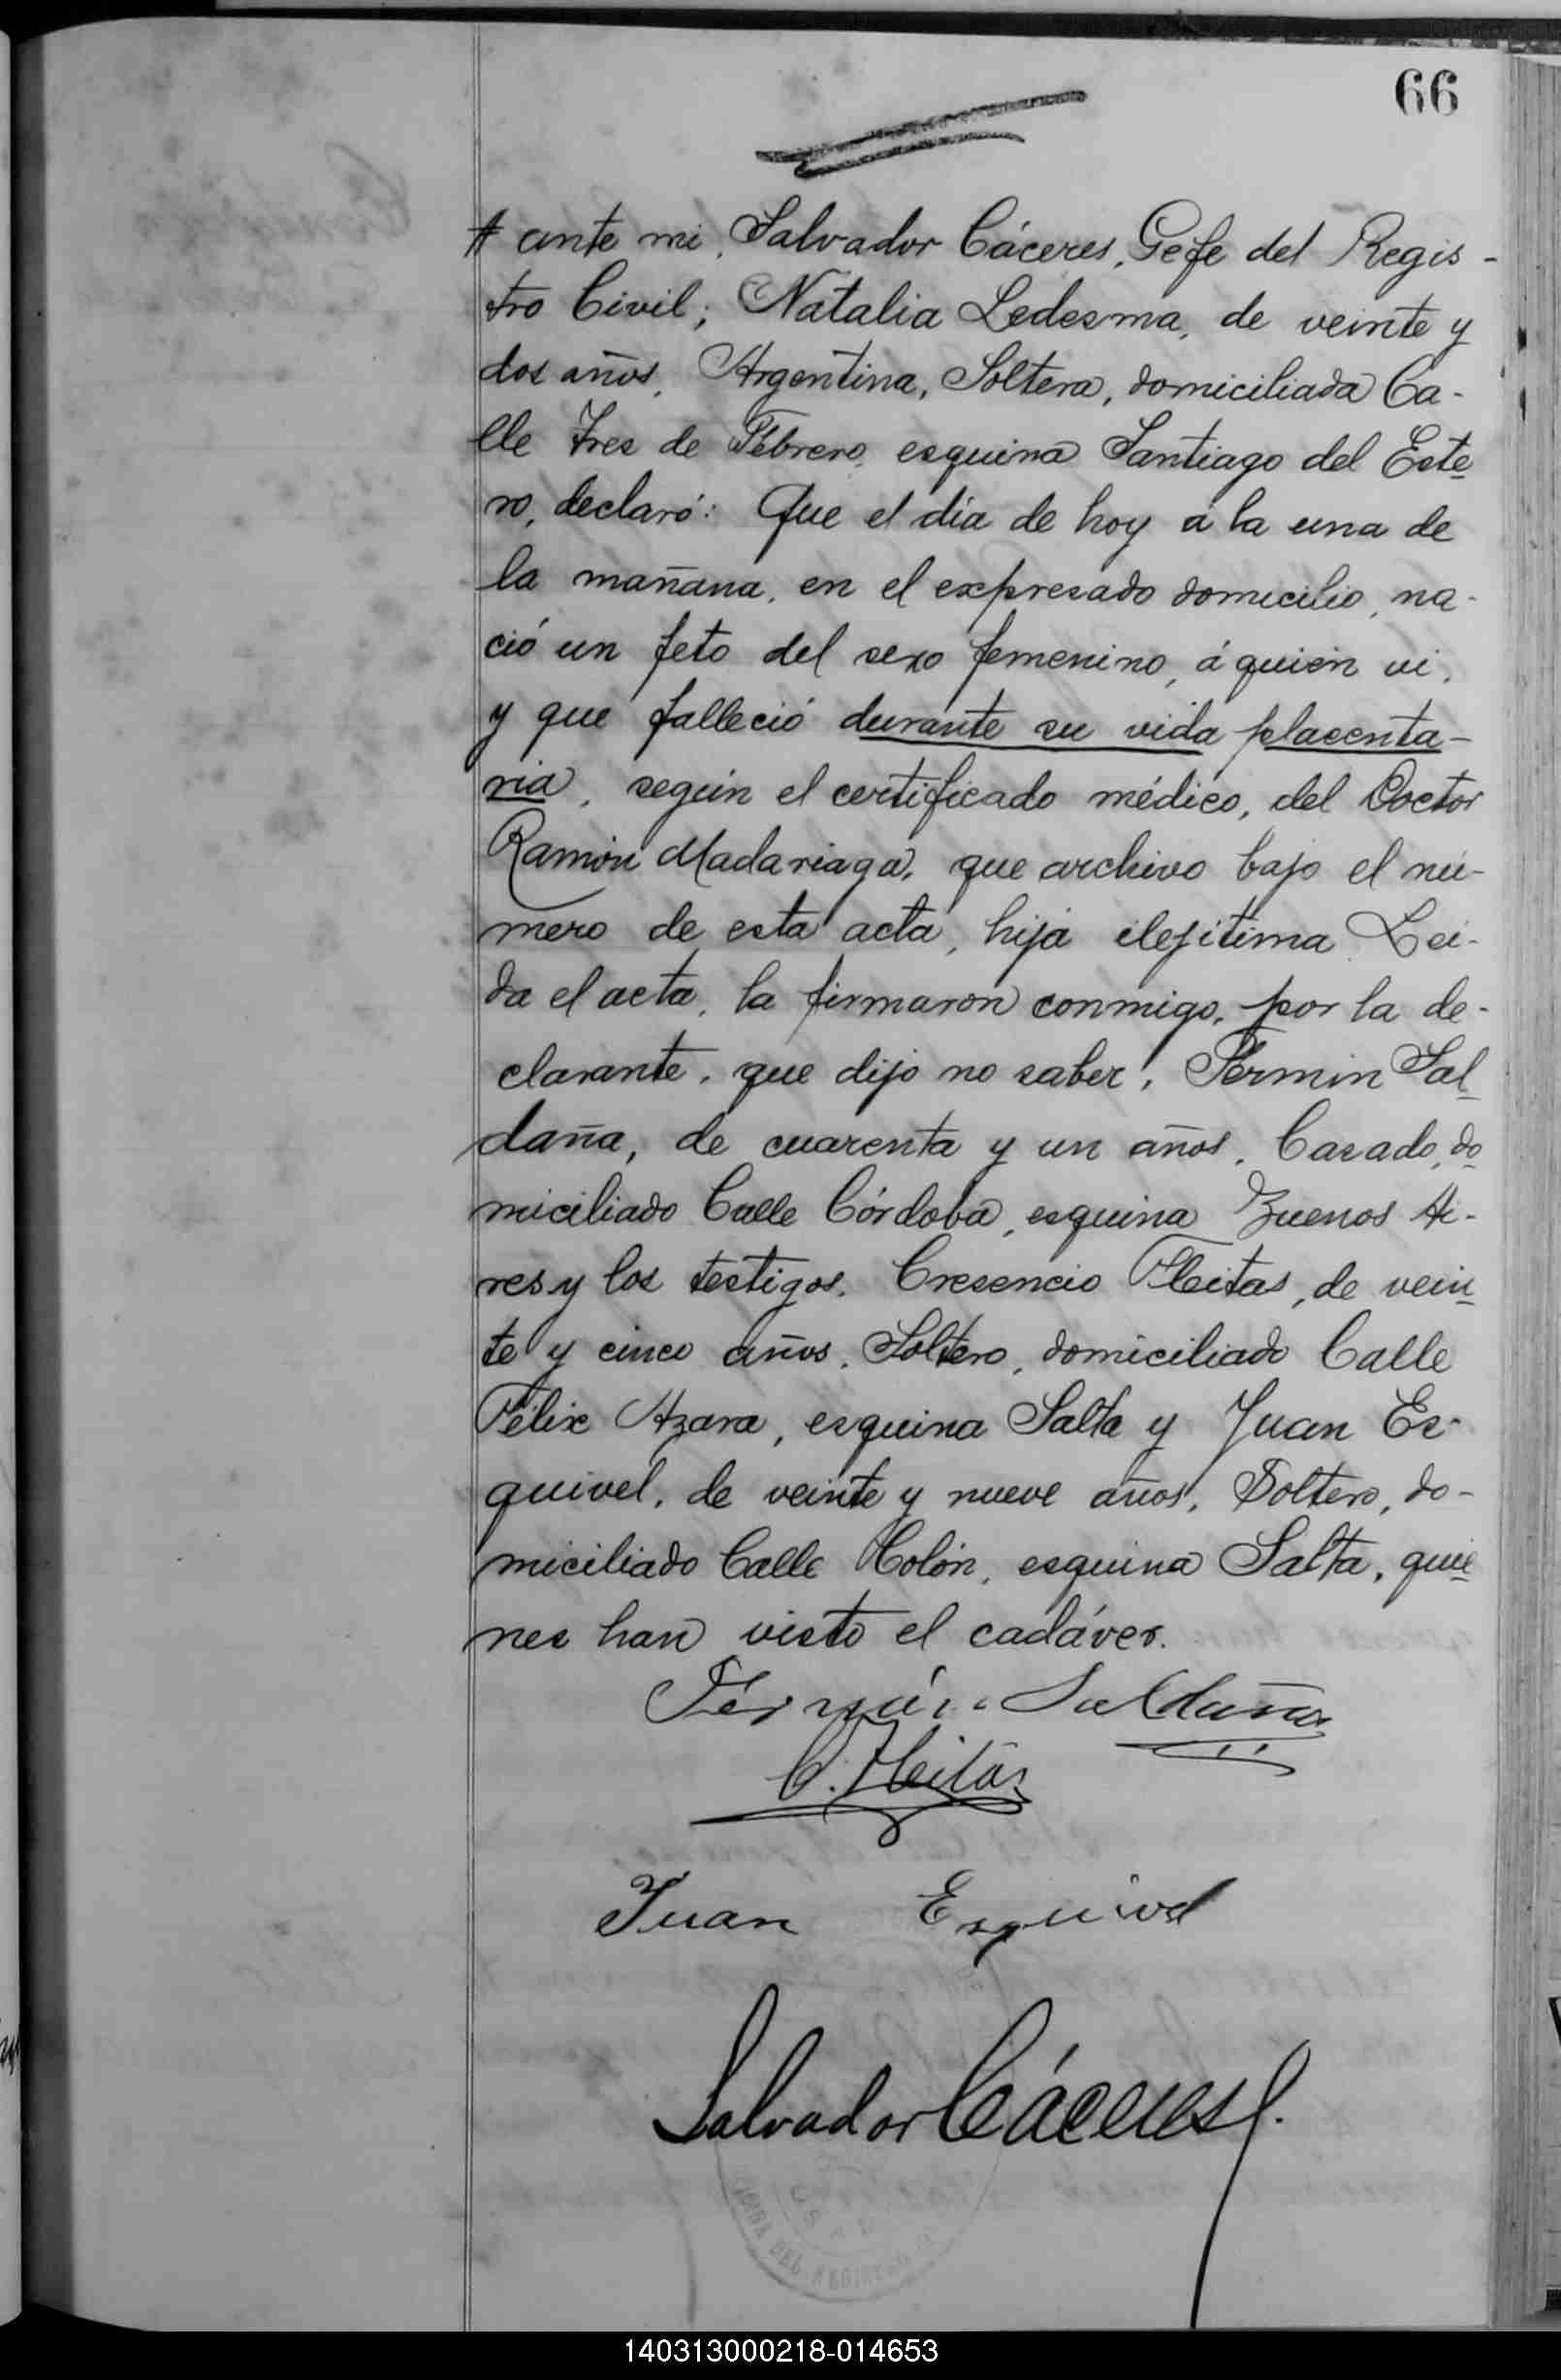 66
ante mi, Salvador Cáceres, Gefe del Regis-
tro Civil; Natalia Ledesma, de veinte y
dos años, Argentina, Soltera, domiciliada Ca-
lle Tres de Febrero, esquina Santiago del Este-
ro, declaró: Que el día de hoy á la una de
la mañana, en el expresado domicilio, na-
ció un feto del sexo femenino, á quién vi,
y que falleció durante su vida placenta-
ria, según el certificado médico, del Doctor
Ramón Madariaga, que archivo bajo el nú-
mero de esta acta, hija ilejítima Lei-
da el acta, la firmaron conmigo, por la de-
clarante, que dijo no saber, Fermin Sal-
daña, de cuarenta y un años, Casado, do-
miciliado Calle Córdoba, esquina Buenos Ai-
res y los testigos, Cresencio Fleitas, de vein-
te y cinco años, Soltero, domiciliado Calle
Félix Azara, esquina Salta y Juan Es-
quivel, de veinte y nueve años, Soltero, do-
miciliado Calle Colón, esquina Salta, quie-
nes han visto el cadáver.
Férmín Saldaña
C. Fleitas
Juan Esquivel
Salvador Cáceres
140313000218-014653